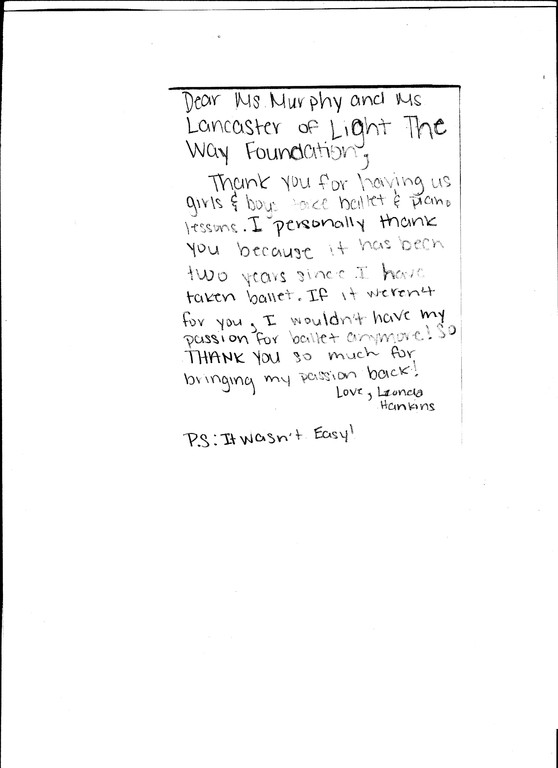 Dear Ms Murphy and Ms
Lancaster of Light The
Way Foundation,
Thank you for having us
girls & boys take ballet & piano
lessons. I personally thank
you because it has been
two years since I have
taken ballet. If it weren't
for you, I wouldn't have my
passion for ballet anymore! So
THANK YOU so much for
bringing my passion back!
Love,
Hankins
P.S: It wasn't Easy!